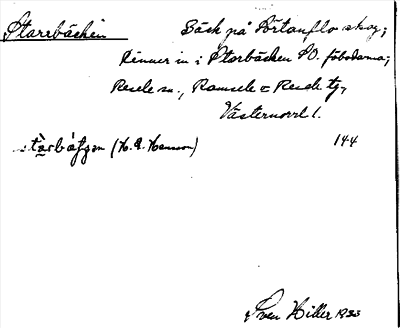 Starrbäcken Bäck på Körtanflo skog;
Rinner in i Storbäcken SO. fäbodarna;
Resele sn., Ramsele o Resele tg,
Västernorrl l.
(K. E. Hansson) 144
Sven Hiller 1933